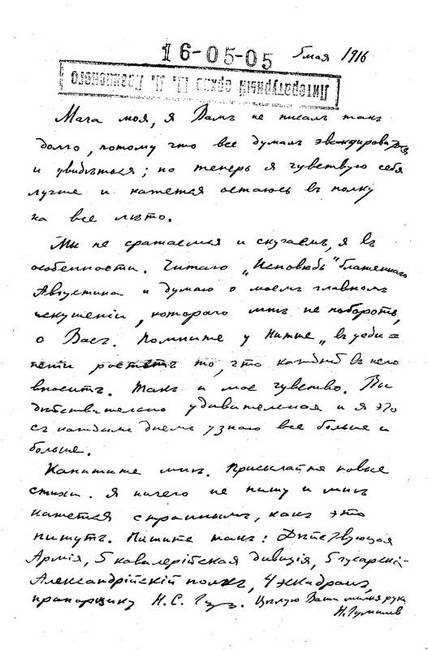 16-05-05 5 мая 1916
Литературный архив
Мага моя, я Вамъ не писалъ такъ
долго, потому что все думалъ эвакуироваться
и увидѣться; но теперь я чувствую себя
лучше и кажется остаюсь въ полку
на все лѣто.
Мы не сражаемся и скучаемъ, я въ
особенности. Читаю „Исповѣдь" блаженнаго
Августина и думаю о моемъ главномъ
искушеніи, котораго мнѣ не побороть,
о Васъ. Помните у Нитше „въ уеди-
неніи растетъ то, что каждый въ него
вноситъ. Такъ и мое чувство. Вы
дѣйствительно удивительная и я это
съ каждымъ днемъ узнаю все больше и
больше.
Напишите мнѣ. Присылайте новые
стихи. Я ничего не пишу и мнѣ
кажется страннымъ, какъ это
пишутъ. Пишите такъ: Дѣйствующая
Армія, 5 кавалерійская дивизія, 5 гусарскій
Александрійскій полкъ, 4 эскадронъ,
прапорщику Н.С. Гум. Цѣлую Ваши милыя руки
Н. Гумилев